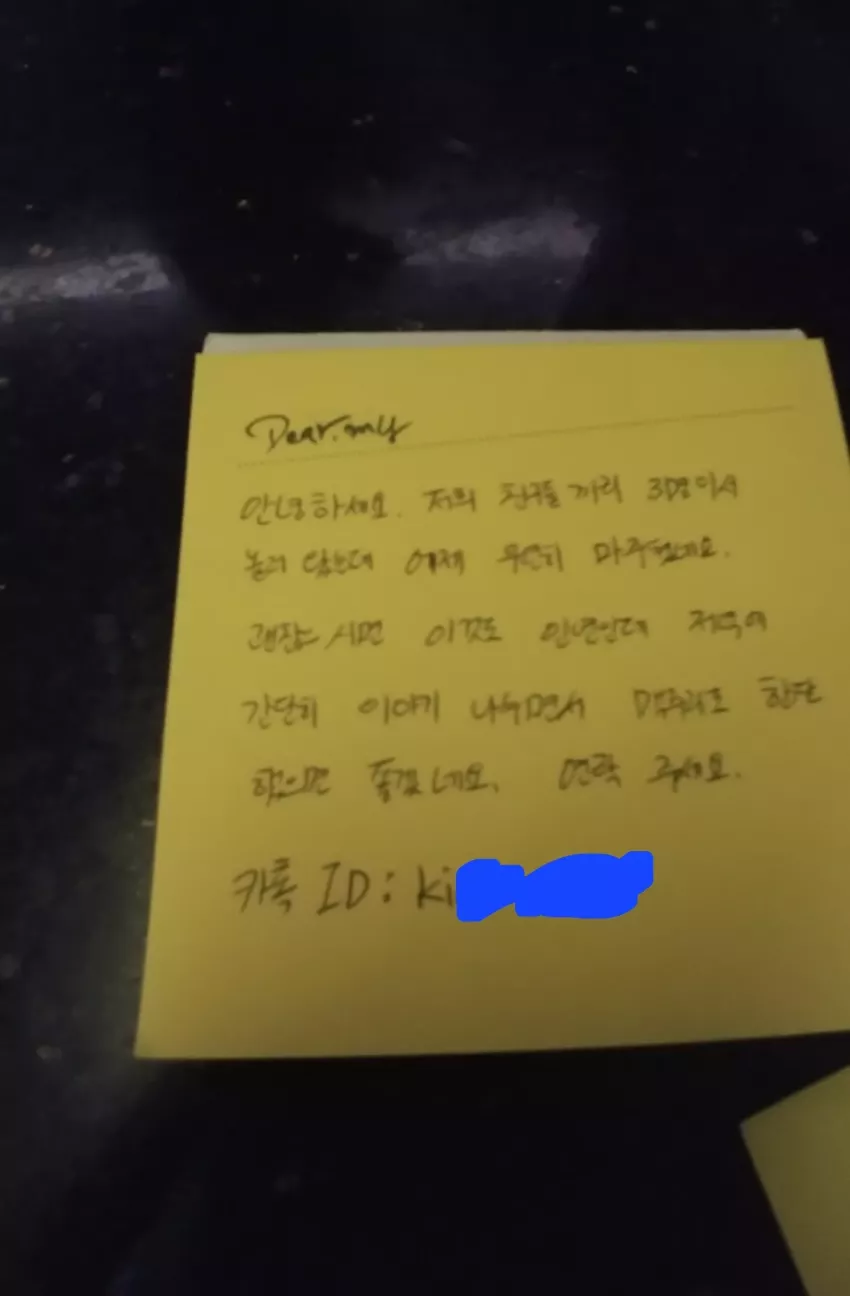 Dear. my
안녕하세요. 저희 친구들끼리 3명이서
놀러 왔는데 어제 우연히 마주쳤네요.
괜찮으시면 이것도 인연인데 저녁에
간단히 이야기 나누면서 맥주라도 한잔
했으면 좋겠네요. 연락 주세요.
카톡 ID : ki